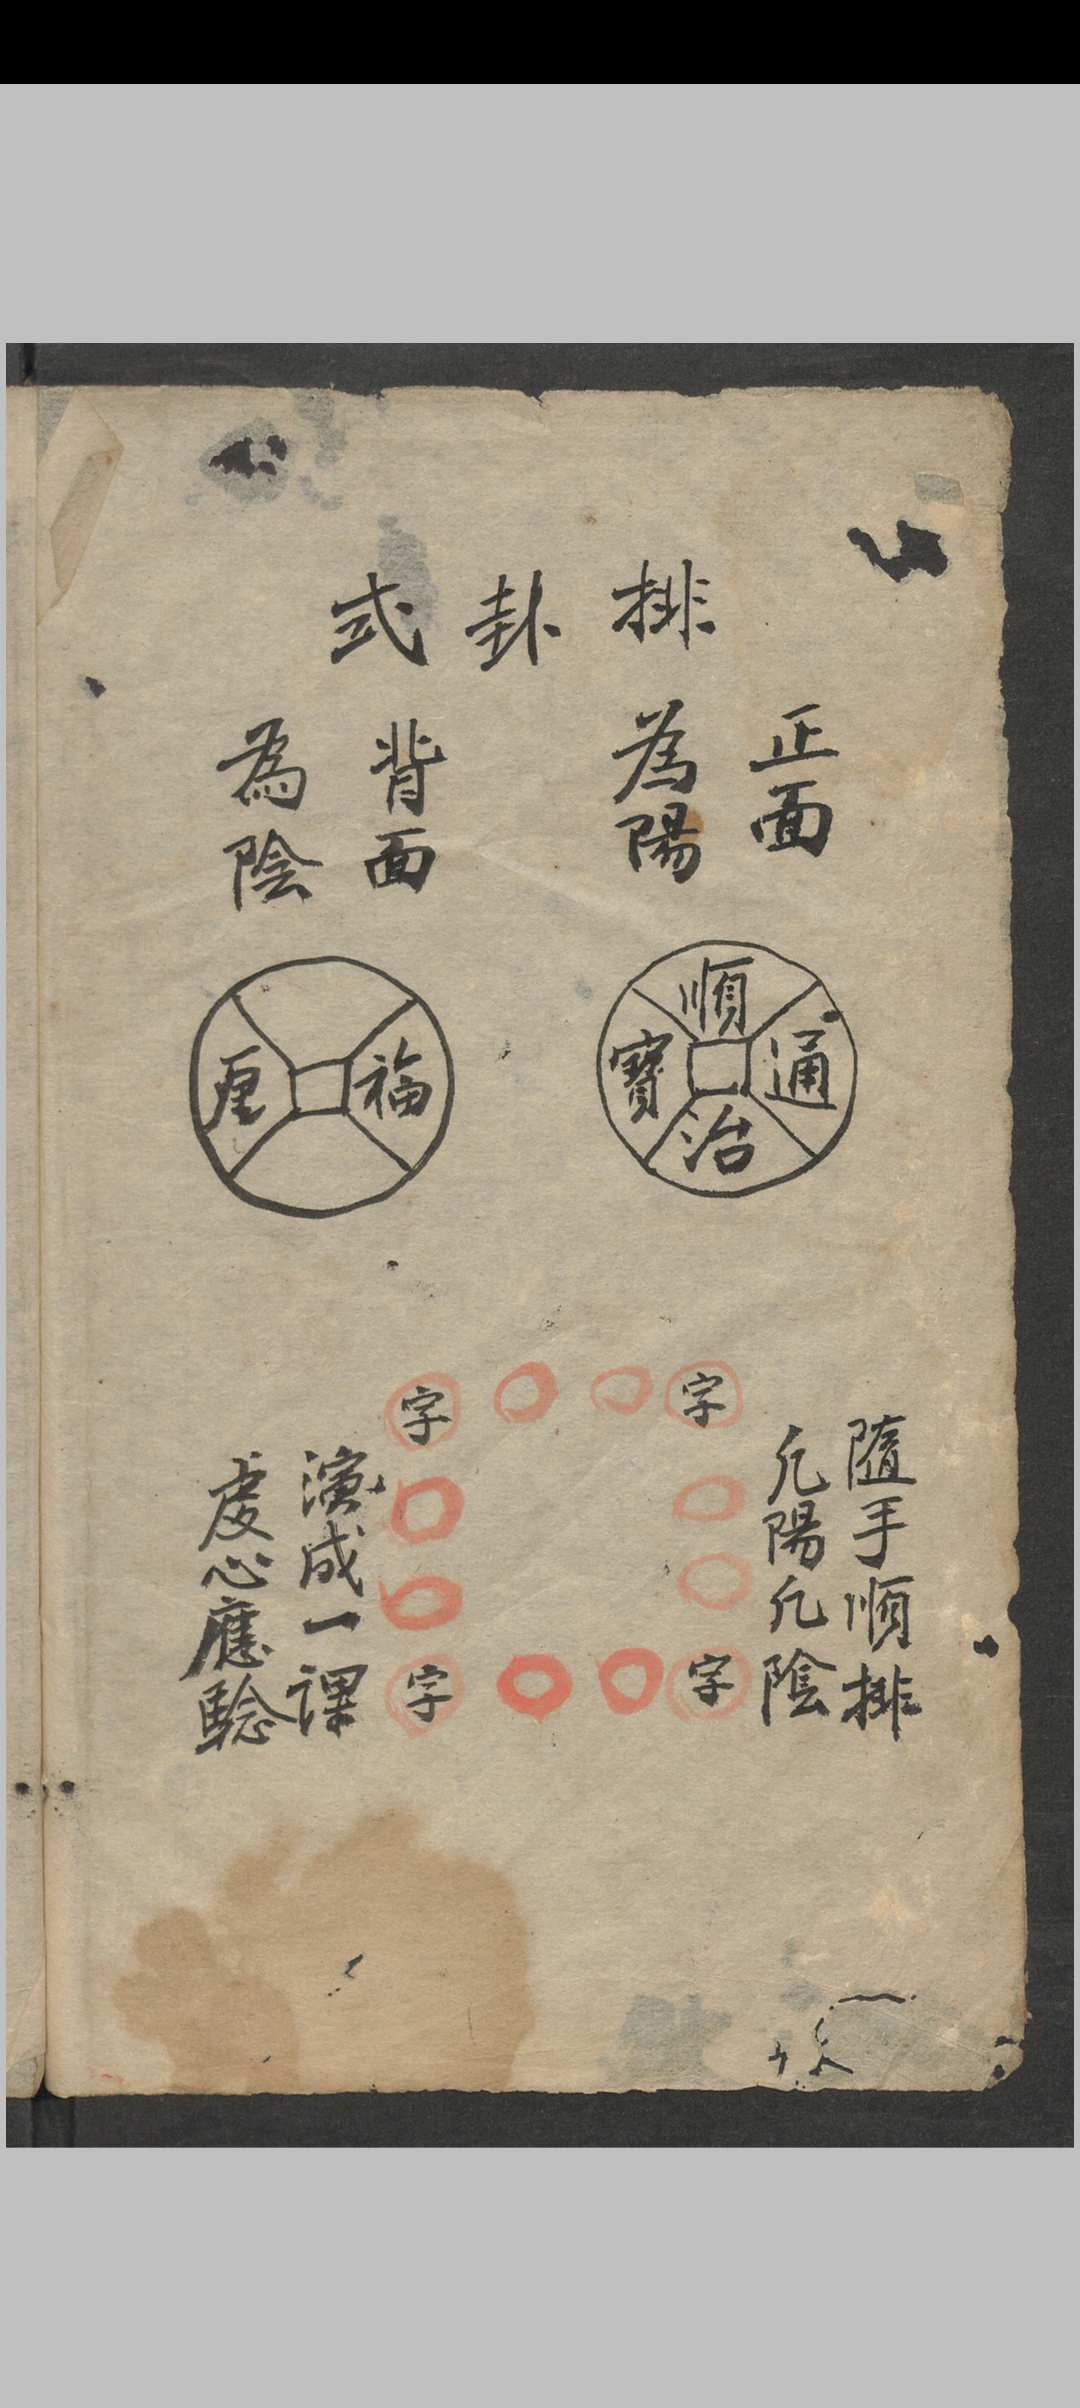 排卦式
正面
為陽
背面
為陰
順治通寳
福
隨手順排
凢陽凢陰
字
字
字
字
演成一課
虔心應騐